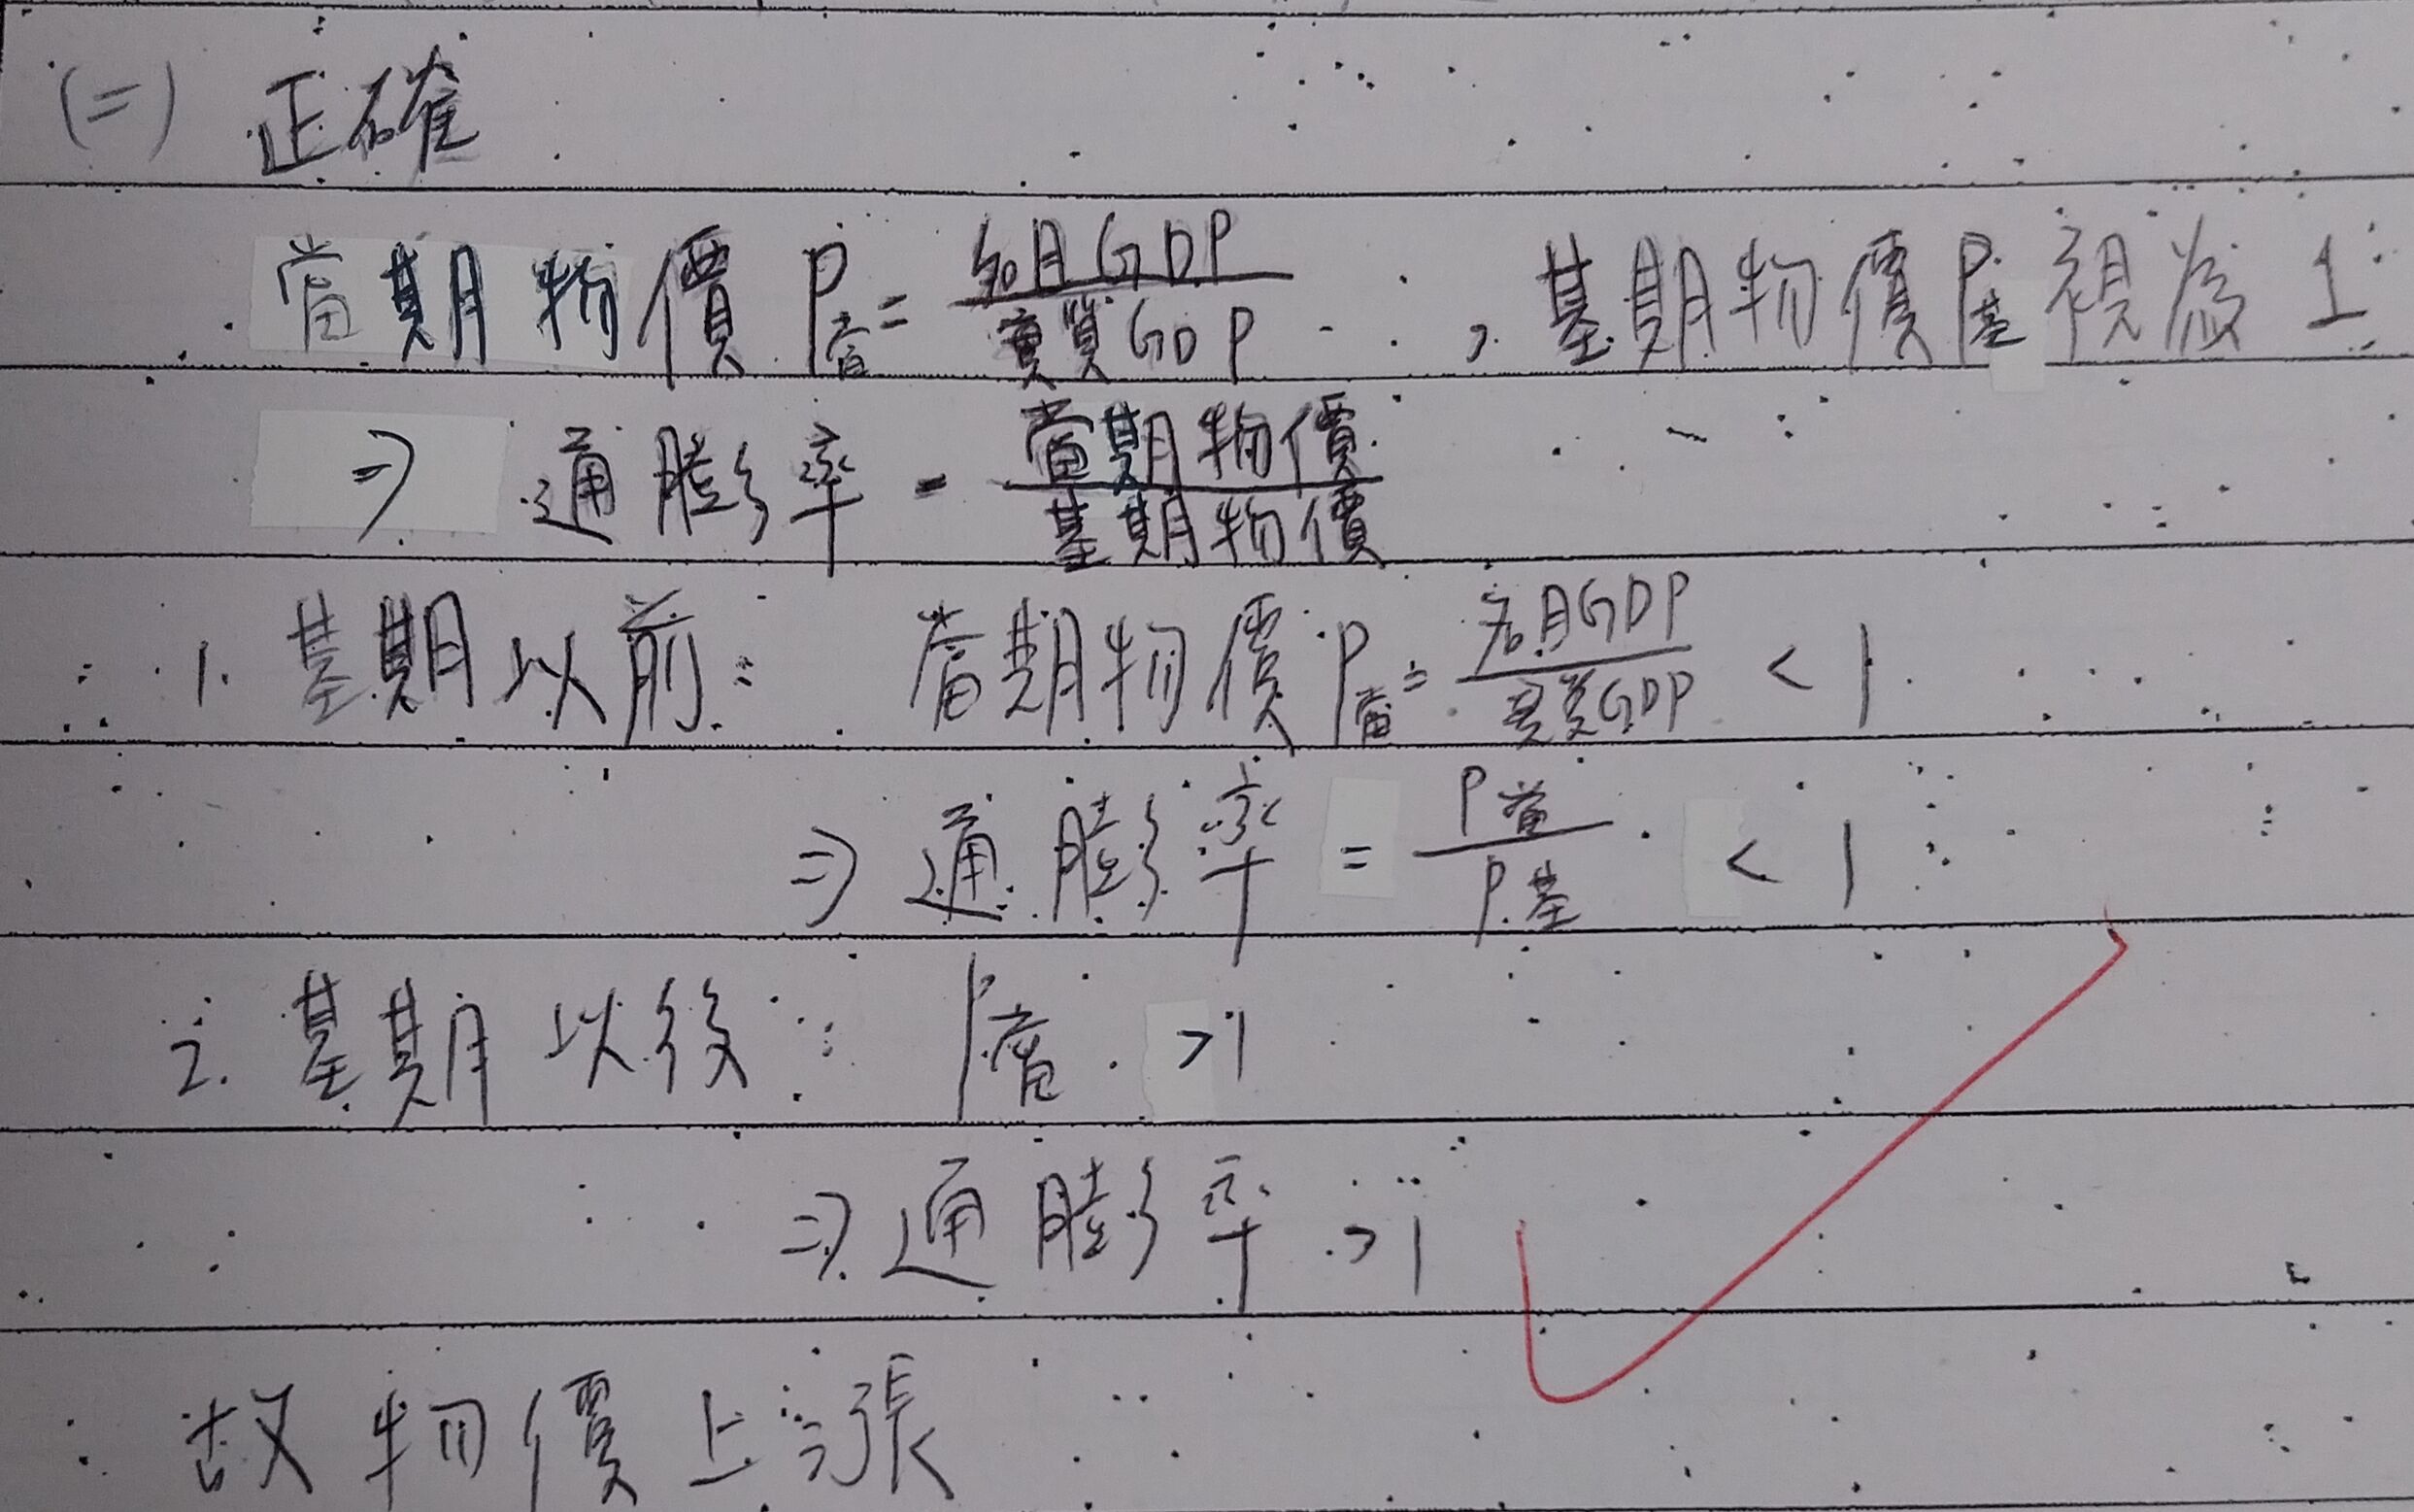 (二) 正確
當期物價 P當 = 名目GDP / 實質GDP , 基期物價 P基 視為 1
⇒ 通膨率 = 當期物價 / 基期物價
1. 基期以前: 當期物價 P當 = 名目GDP / 實質GDP < 1
⇒ 通膨率 = P當 / P基 < 1
2. 基期以後: P當 >1
⇒ 通膨率 >1
故物價上漲